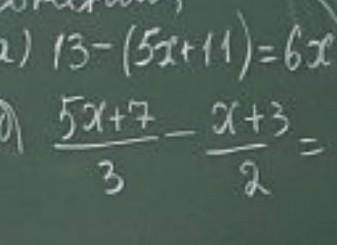 a) 13-(5x+11)=6x
(5x+7)/3 - (x+3)/2 =